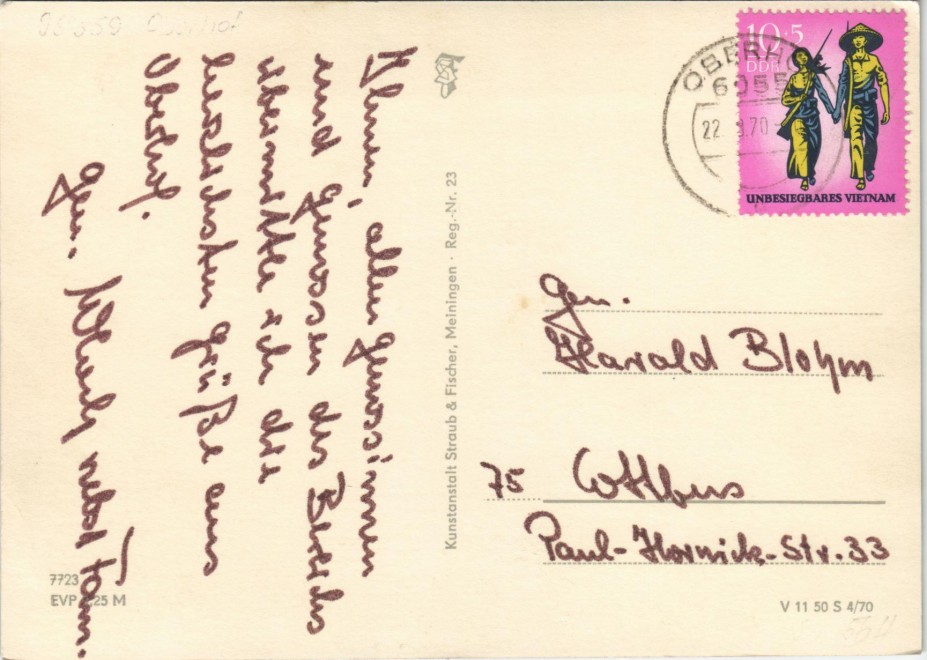 98559 Oberhof
Ihnen, allen Genossinnen
und Genossen des Bereiches
übermittle ich die
herzlichsten Grüße aus
Oberhof.
Gen. nebst Fam.
7723
EVP 0,25 M
Kunstanstalt Straub & Fischer, Meiningen · Reg.-Nr. 23
OBERHO
6055
22. .70
10+5
DDR
UNBESIEGBARES VIETNAM
Gen.
Harald Blohm
75 Cottbus
Paul-Hornick-Str. 33
V 11 50 S 4/70